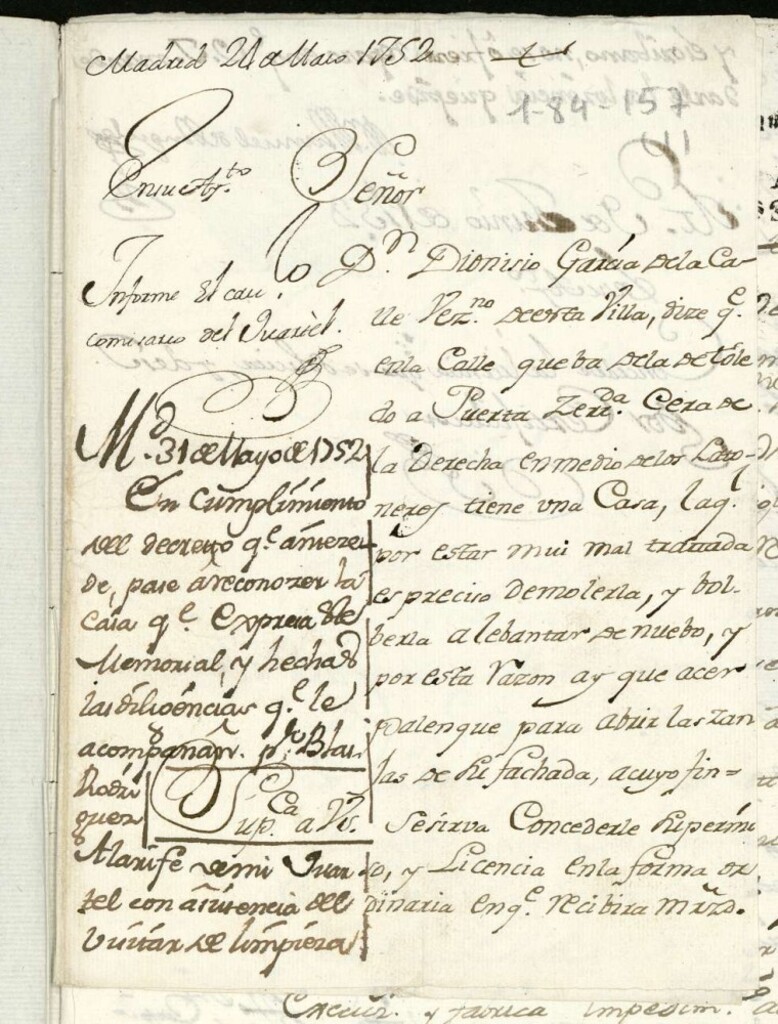 Madrid 24 de Maio 1752
1-84-157
En su Aytto.
Señor
Informe el cavo.
comisario del Quartel.
Dn. Dionisio García de la Ca-
lle Vezno. de esta Villa, dize qe.
en la Calle que ba de la de tole
do a Puerta Zerrda. Cera de
la derecha en medio de los Lato-
neros tiene una Casa, laql.
por estar mui mal tratada
es preciso demolerla, y bol-
berla a lebantar de nuebo, y
por esta razon ay que acer
Palenque para abrir las zan
las de su fachada, acuyo fin=
Suppca. a V.S.
Se sirva Concederle su permi
so, y Licencia en la forma or
dinaria en qe. recibira mrzd.
Md. 31 de Mayo de 1752
En Cumplimiento
del decreto qe. anteze-
de, pase à reconozer la
casa qe. expresa este
Memorial, y hechas
las diligencias qe. le
acompañan. pr. Blas
Rodri
guez
Alarife de mi Quar
tel con asistencia del
Visitar de limpieza
Execur. y fabrica impedim.